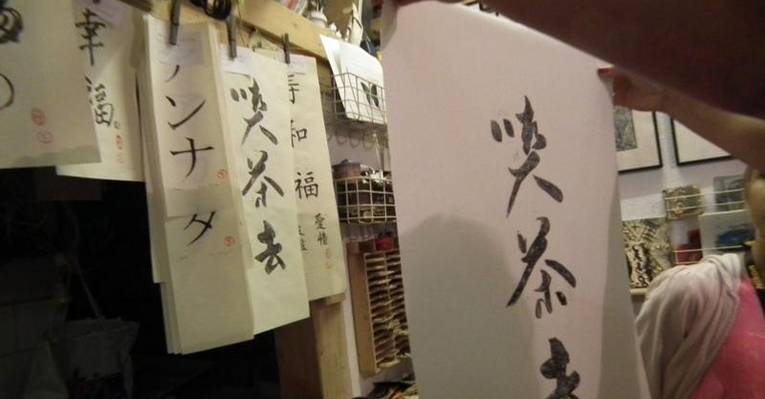 幸福
ンナタ
喫茶去
寿和福
愛情
喫茶去